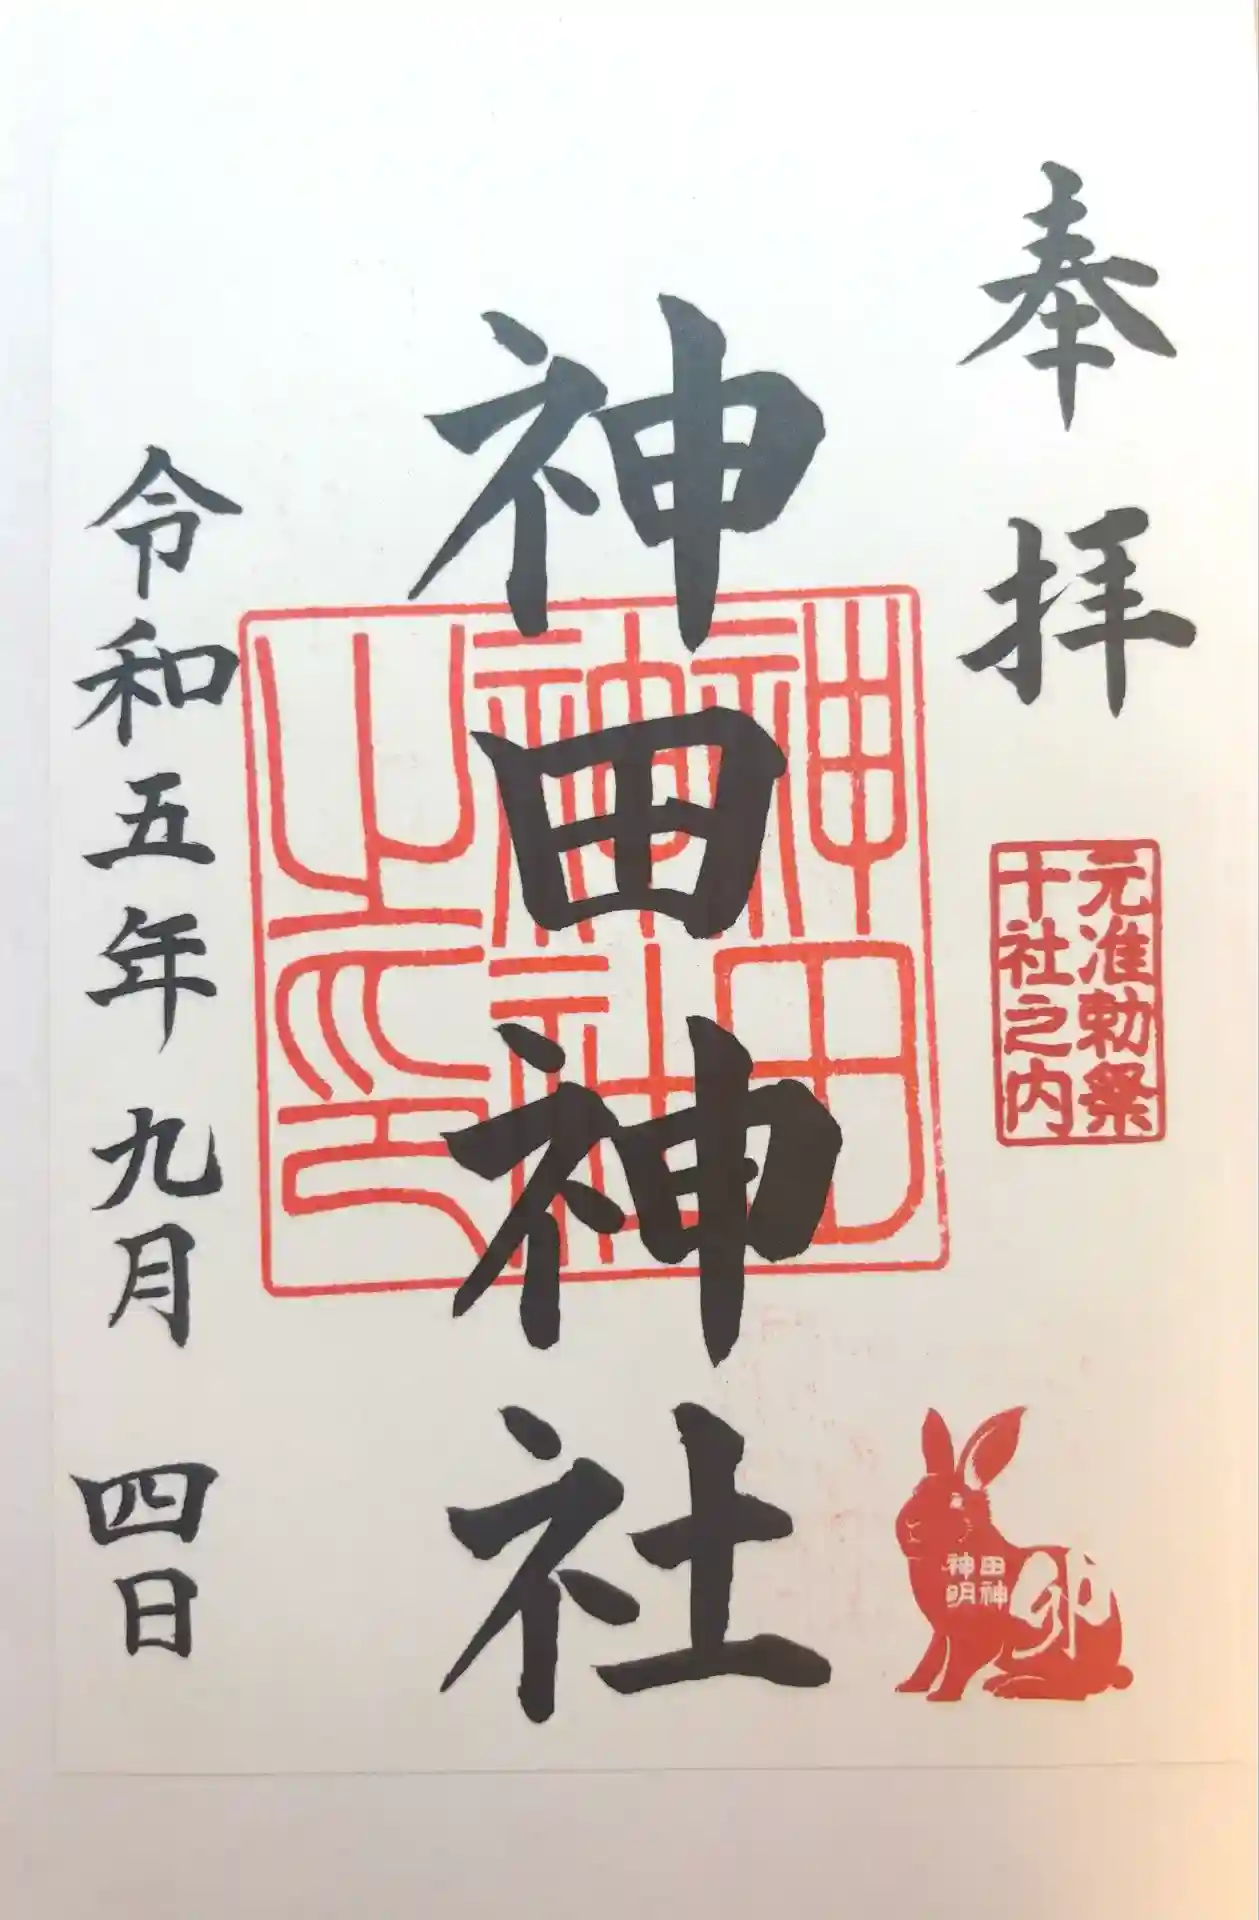 奉拝
元准勅祭
十社之内
卯
田神
神明
神田神社
神田
神社
之印
令和五年九月四日